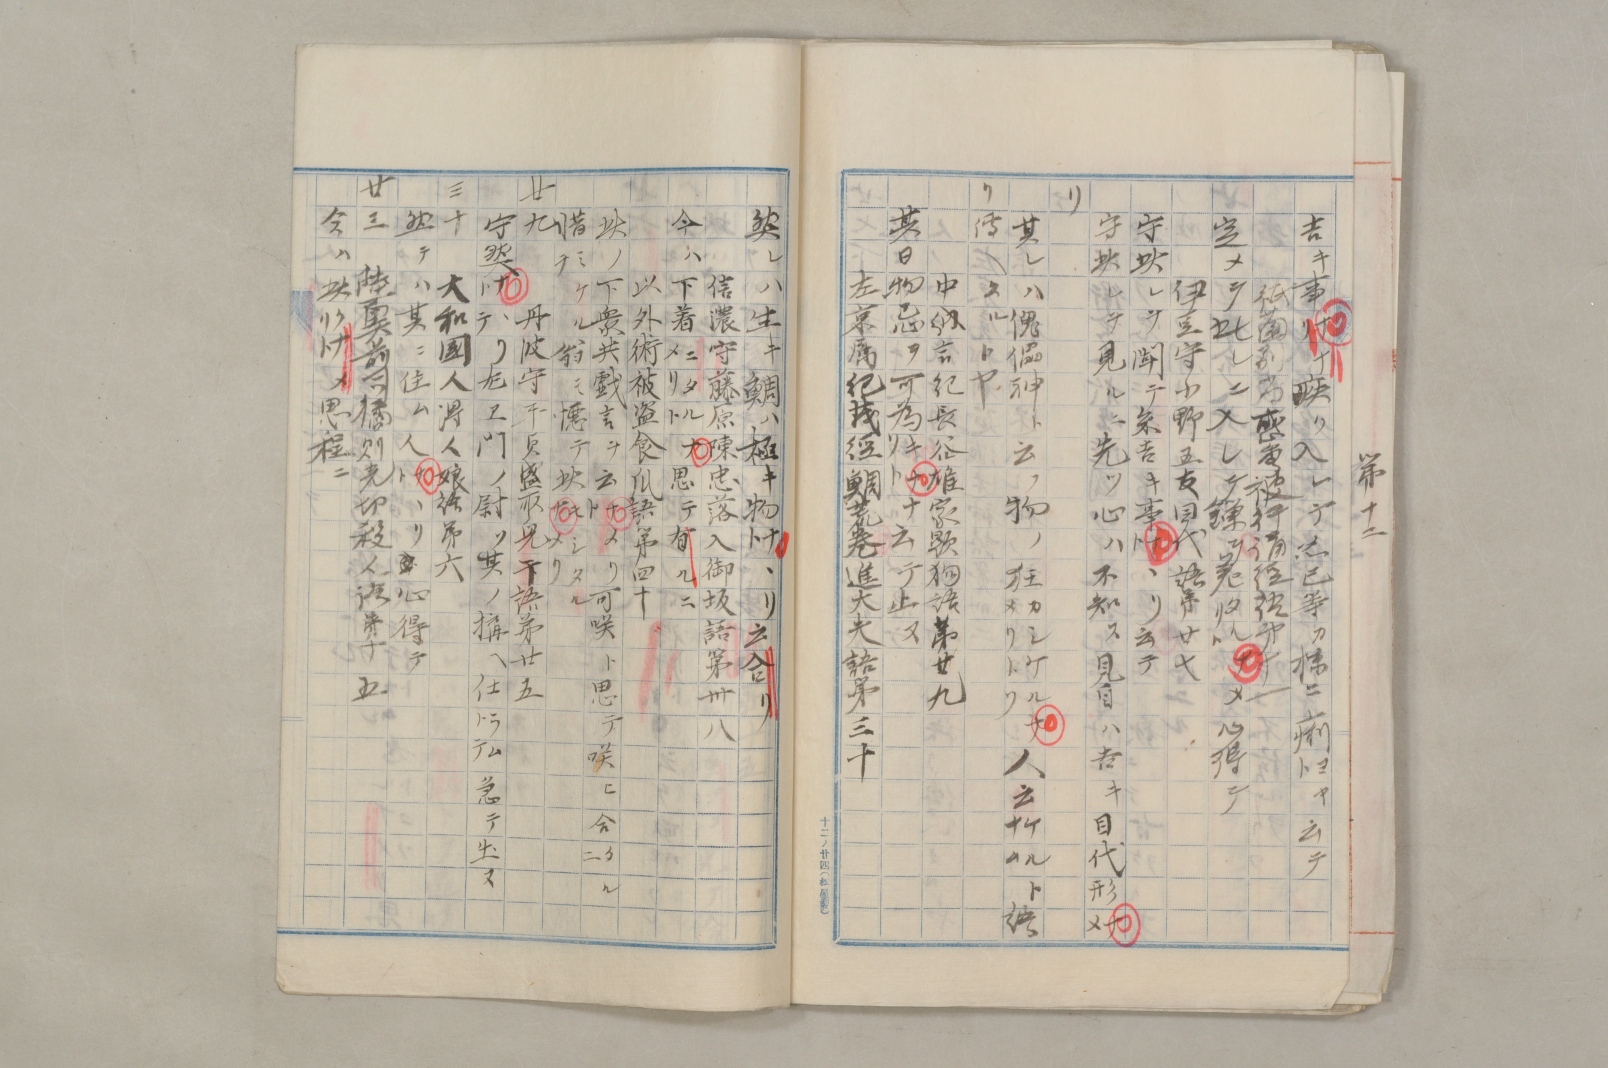 第十二
吉キ事ナリナ疾ク入レテ
云テ
祇園別当感秀被行誦経語第十一
定メテ此レニ入レテ
心得テ
伊豆守小野五友目代語第廿七
守此レヲ聞テ糸吉キ事ナヽリト云テ
守此レヲ見ルニ先ツ心ハ不知ス見目ハ吉キ目代形ナメ
リ
其レハ傀儡神ト云フ物ノ狂カシケルナメリトソ人云ケル
ト語
リ傳ヘタルトヤ
中納言紀長谷雄家顕狗語第廿九
其日物忌ヲ可為キナリト云テ止ヌ
左京属紀茂経鯛荒巻進大夫語第三十
十二ノ廿四
然レハ生キ鯛ハ極キ物ナヽリト云合リ
信濃守藤原陳忠落入御坂語第卅八
今ハ下着ニタルナメリト思テ有ルニ
以外術被盗食瓜語第四十
此ノ下衆共戯言ヲ云ナメリ可咲ト思テ咲ヒ合タルニ
腊ミケル翁ミ憾テ此キシタルナメリ
廿九
丹波守平貞盛取児干語第廿五
守然ナヽリト
左衛門ノ尉ソ其ノ搆ヘ仕トラテム急テ出ヌ
三十
大和國人得人娘語第六
然テハ其ニ住ム人ナヽリト心得テ
廿三
陸奥前司橘則光切殺人語第十五
今ハ此クナメリト思程ニ